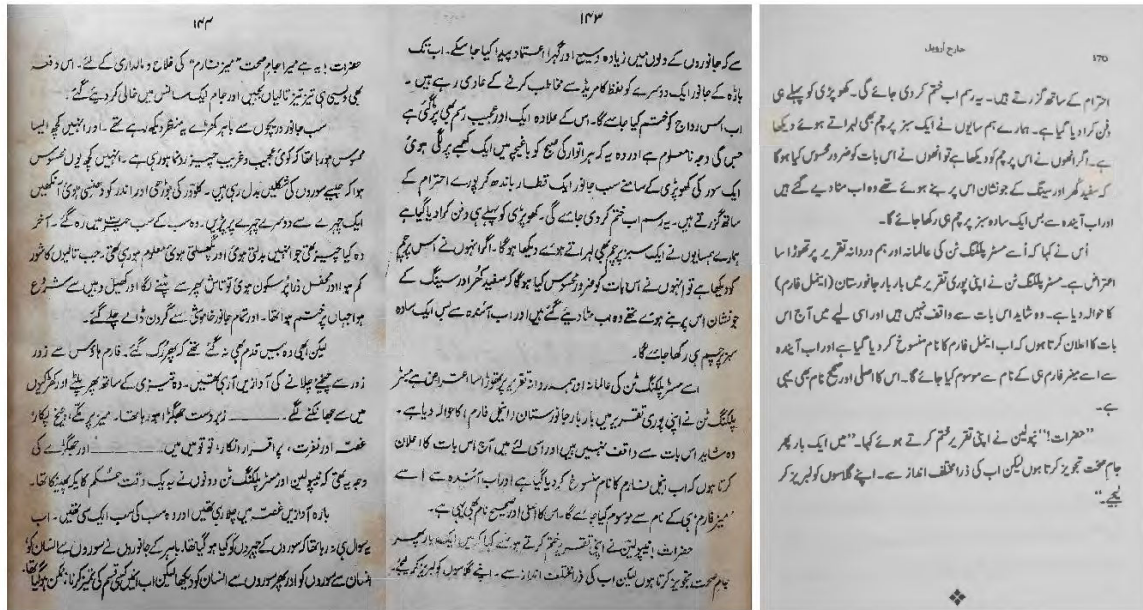 ۱۴۳
سے کہ جانوروں کے دلوں میں زیادہ وسیع اور گہرا اعتماد پیدا کیا جا سکے۔ اب تک
باڑہ کے جانور ایک دوسرے کو لفظ کامریڈ سے مخاطب کرنے کے عادی رہے ہیں۔
اب اس رواج کو ختم کیا جائے گا۔ اس کے علاوہ ایک اور عجیب رسم بھی پڑ گئی ہے
جس کی وجہ نامعلوم ہے اور وہ یہ کہ ہر اتوار کی صبح کو باغیچہ میں ایک کھمبے پر لگی ہوئی
ایک سور کی کھوپڑی کے سامنے سب جانور ایک قطار باندھ کر پورے احترام کے
ساتھ گزرتے ہیں۔ یہ رسم اب ختم کر دی جائے گی۔ کھوپڑی کو پہلے ہی دفن کرا دیا گیا ہے
ہمارے ہمسایوں نے ایک سبز پرچم بھی لہراتے ہوئے دیکھا ہوگا۔ اگر انہوں نے اس پرچم
کو دیکھا ہے تو انہوں نے اس بات کو ضرور محسوس کیا ہوگا کہ سفید کھر اور سینگ کے
جو نشان اس پر بنے ہوئے تھے وہ اب مٹا دیئے گئے ہیں اور اب آئندہ سے بس ایک سادہ
سبز پرچم ہی رکھا جائے گا۔
اسے مسٹر پلکنگ ٹن کی عالمانہ اور ہمدردانہ تقریر پر تھوڑا سا اعتراض ہے مسٹر
پلکنگ ٹن نے اپنی پوری تقریر میں بار بار جانورستان (اینمل فارم) کا حوالہ دیا ہے۔
وہ شاید اس بات سے واقف نہیں ہیں اور اسی لئے میں آج اس بات کا اعلان
کرتا ہوں کہ اب اینمل فارم کا نام منسوخ کر دیا گیا ہے اور اب آئندہ سے اسے
'مینر فارم' ہی کے نام سے موسوم کیا جائے گا۔ اس کا اصلی اور صحیح نام بھی یہی ہے۔
حضرات! نیپولین نے اپنی تقریر ختم کرتے ہوئے کہا کہ میں ایک بار پھر
جام صحت تجویز کرتا ہوں لیکن اب کی ذرا مختلف انداز سے۔ اپنے گلاسوں کو لبریز کر لیجئے۔
۱۴۴
حضرات! یہ ہے میرا جام صحت "مینر فارم" کی فلاح و مالداری کے لئے۔ اس دفعہ
بھی ویسی ہی تیز تیز تالیاں بجیں اور جام ایک سانس میں خالی کر دیئے گئے۔
سب جانور دریچوں سے باہر کھڑے یہ منظر دیکھ رہے تھے۔ اور انہیں کچھ ایسا
محسوس ہو رہا تھا کہ کوئی عجیب و غریب چیز رونما ہو رہی ہے۔ انہیں کچھ یوں محسوس
ہوا کہ جیسے سوروں کی شکلیں بدل رہی ہیں۔ کلوور کی بوڑھی اور اندر کو دھنسی ہوئی آنکھیں
ایک چہرے سے دوسرے چہرے پر پڑیں۔ وہ سب کے سب حیرت میں رہ گئے۔ آخر
وہ کیا چیز تھی جو انہیں بدلتی ہوئی اور پگھلتی ہوئی معلوم ہو رہی تھی۔ جب تالیوں کا شور
کم ہوا اور محفل ذرا پر سکون ہوئی تو تاش پھر سے بٹنے لگا اور کھیل وہیں سے شروع
ہوا جہاں پر ختم ہوا تھا۔ اور تمام جانور خاموشی سے گردن ڈالے چلے گئے۔
لیکن ابھی وہ بیس قدم بھی نہ گئے تھے کہ پھر رک گئے۔ فارم ہاؤس سے زور
زور سے چیخنے چلانے کی آوازیں آ رہی تھیں۔ وہ تیزی کے ساتھ پھر پلٹے اور کھڑکیوں
میں سے جھانکنے لگے۔ ــــــــ زبردست جھگڑا ہو رہا تھا۔ میز پر مکے، چیخ پکار،
غصہ اور نفرت، پر اقرار انکار، تو تو میں میں۔ ــــــــ اور جھگڑے کی
وجہ یہ تھی کہ نیپولین اور مسٹر پلکنگ ٹن دونوں نے بہ یک وقت حکم کا یکہ پھینکا تھا۔
بارہ آوازیں غصہ میں چلا رہی تھیں اور وہ سب کی سب ایک سی تھیں۔ اب
یہ سوال ہی نہ رہا تھا کہ سوروں کے چہروں کو کیا ہو گیا تھا۔ باہر کے جانوروں نے سوروں سے انسان کو،
انسان سے سوروں کو اور پھر سوروں سے انسان کو دیکھا لیکن اب انہیں کسی قسم کی تمیز کرنا ناممکن ہو گیا تھا۔
۱۷۵
جارج آرویل
احترام کے ساتھ گزرتے ہیں۔ یہ رسم اب ختم کر دی جائے گی۔ کھوپڑی کو پہلے ہی
دفن کرا دیا گیا ہے۔ ہمارے ہم سایوں نے ایک سبز پرچم بھی لہراتے ہوئے دیکھا
ہے۔ اگر انھوں نے اس پرچم کو دیکھا ہے تو انھوں نے اس بات کو ضرور محسوس کیا ہوگا
کہ سفید کھر اور سینگ کے جو نشان اس پر بنے ہوئے تھے وہ اب مٹا دیے گئے ہیں
اور اب آیندہ سے بس ایک سادہ سبز پرچم ہی رکھا جائے گا۔
اُس نے کہا کہ اُسے مسٹر پلکنگ ٹن کی عالمانہ اور ہم دردانہ تقریر پر تھوڑا سا
اعتراض ہے۔ مسٹر پلکنگ ٹن نے اپنی پوری تقریر میں بار بار جانورستان (اینمل فارم)
کا حوالہ دیا ہے۔ وہ شاید اس بات سے واقف نہیں ہیں اور اسی لیے میں آج اس
بات کا اعلان کرتا ہوں کہ اب اینمل فارم کا نام منسوخ کر دیا گیا ہے اور اب آیندہ
سے اسے مینر فارم ہی کے نام سے موسوم کیا جائے گا۔ اس کا اصلی اور صحیح نام بھی یہی
ہے۔
"حضرات!" نپولین نے اپنی تقریر ختم کرتے ہوئے کہا۔ "میں ایک بار پھر
جامِ صحت تجویز کرتا ہوں لیکن اب کی ذرا مختلف انداز سے۔ اپنے گلاسوں کو لبریز کر
لیجیے۔"